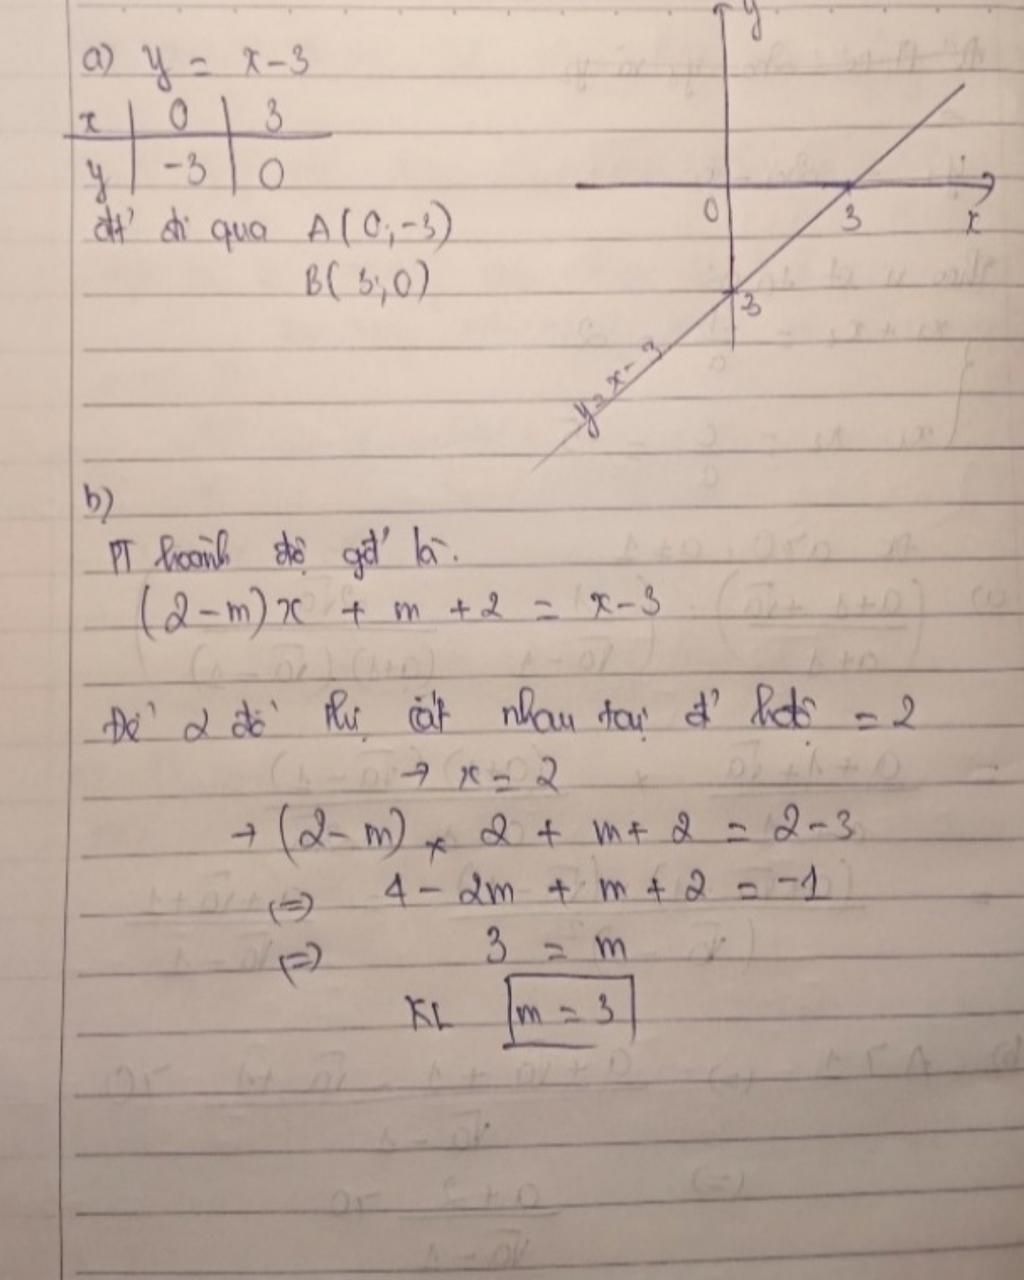 a) y = x - 3
x | 0 | 3
y | -3 | 0
đt' đi qua A(0;-3)
B(3;0)
y
0
3
x
3
y = x - 3
b)
PT hoành độ gđ' là.
(2-m)x + m + 2 = x-3
Để 2 đồ thị cắt nhau tại đ' hđộ = 2
→ x = 2
→ (2-m) × 2 + m + 2 = 2-3
(=) 4 - 2m + m + 2 = -1
(=) 3 = m
KL m = 3